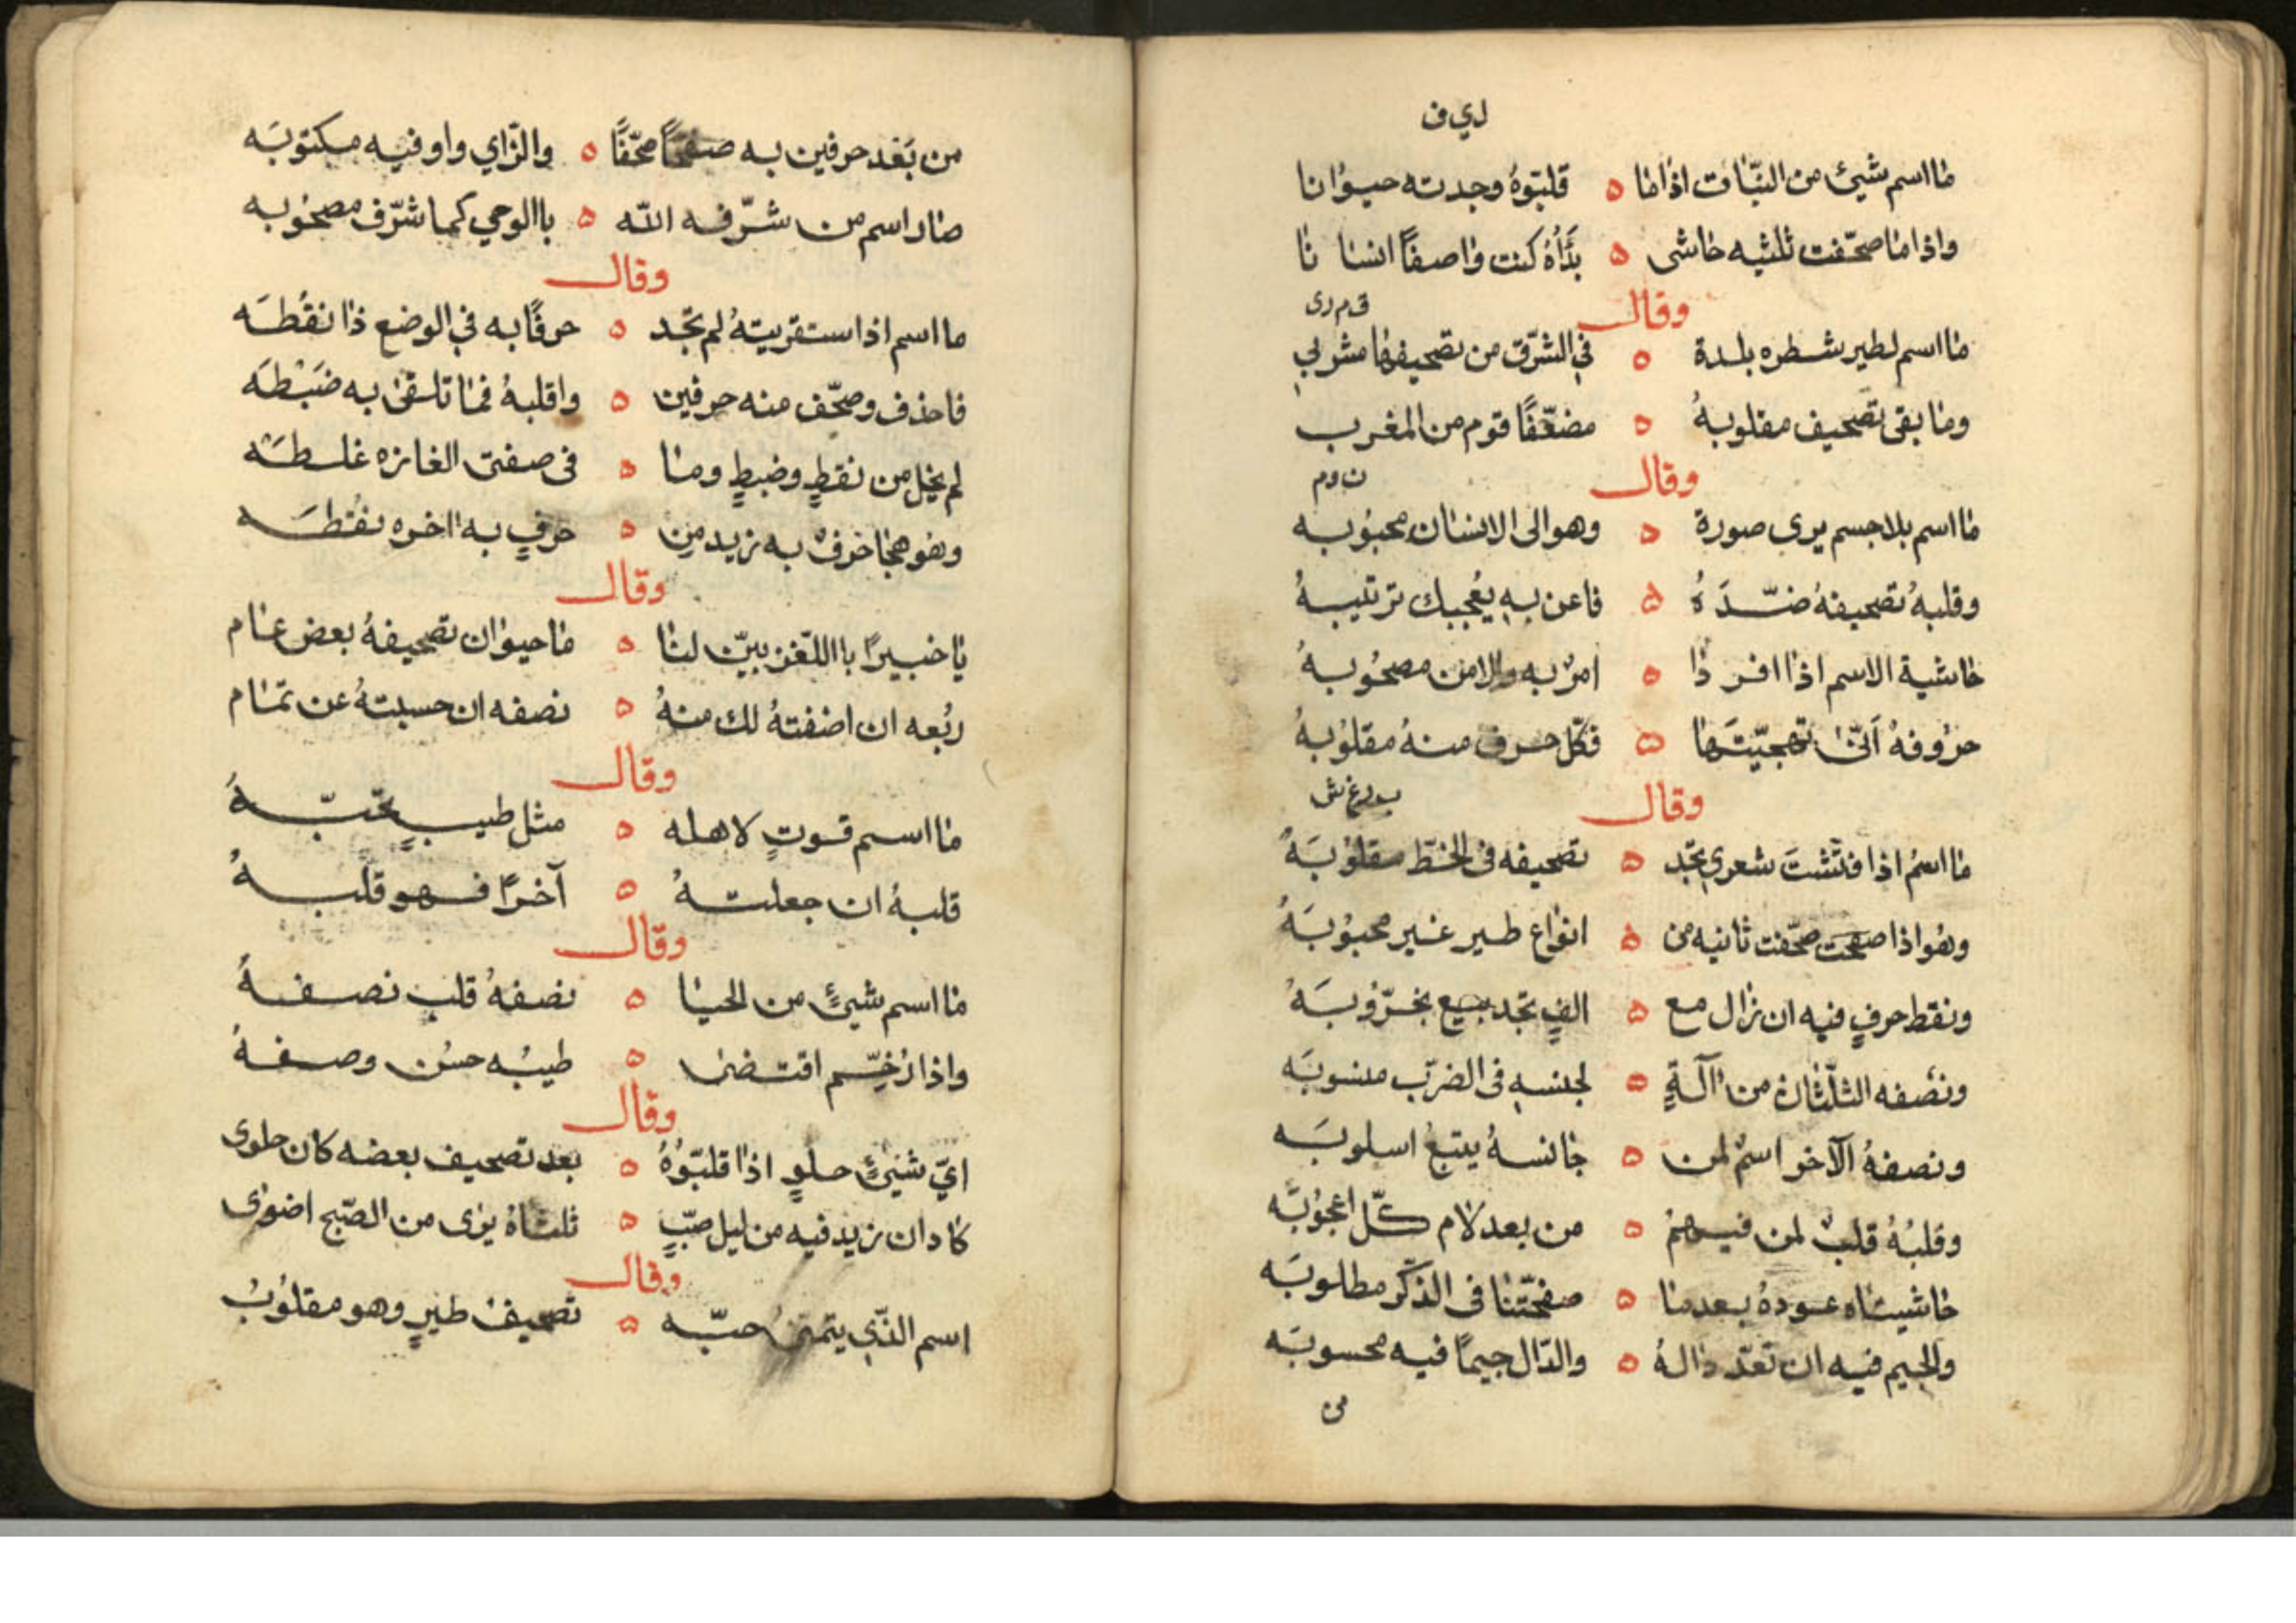 ليف
ما اسم شيئ من النبات اذا ما ٥ قلبوه وجدته حيوانا
واذا ما صحفت ثلثيه حاشى ٥ بدأه كنت واصفا انسانا
وقال
قمرى
ما اسم لطير شطره بلدة ٥ في الشرق من تصحيفها مشربي
وما بقى تصحيف مقلوبه ٥ مضعفا قوم من المغرب
وقال
نوم
ما اسم بلا جسم يرى صورة ٥ وهو الى الانسان محبوبه
وقلبه تصحيفه ضده ٥ فاعن به يعجبك ترتيبه
حاشية الاسم اذا افردا ٥ امر به والامن مصحوبه
حروفه انى تهجيتها ٥ فكل حرف منه مقلوبه
وقال
ما اسم اذا فتشت شعري تجد ٥ تصحيفه في الخط مقلوبه
وهو اذا صحفت ثانيه من ٥ انواع طير غير محبوبه
ونقط حرف فيه ان زال مع ٥ الف تجد بيع بخروبه
ونصفه الثلثان من آلة ٥ لجنسه في الضرب منسوبه
ونصفه الآخر اسم لمن ٥ جانسه يتبع اسلوبه
وقلبه قلب لمن فهم ٥ من بعد لام كل اعجوبه
حاشيتاه عوده بعدما ٥ صفحتنا في الذكر مطلوبه
والجيم فيه ان تعد داله ٥ والدال جيما فيه محسوبه
من
من بعد حرفين به صحفا ٥ والزاي واو فيه مكتوبه
صار اسم من شرفه الله ٥ باالوحي كما شرف مصحوبه
وقال
ما اسم اذا استقريته لم تجد ٥ حرفا به في الوضع ذا نقطه
فاحذف وصحف منه حرفين ٥ واقلبه فما تلقى به ضبطه
لم يخل من نقط وضبط وما ٥ في صفتى الغازه غلطه
وهو هجا حرف به زيد من ٥ حرف به اخره نقطه
وقال
يا خبيرا باللغز بين لنا ٥ ما حيوان تصحيفه بعض عام
ربعه ان اضفته لك منه ٥ نصفه ان حسبته عن تمام
وقال
ما اسم قوت لاهله ٥ مثل طيب تحبه
قلبه ان جعلته ٥ آخرا فهو قلبه
وقال
ما اسم شيئ من الحيا ٥ نصفه قلب نصفه
واذا رخم اقتضى ٥ طيبه حسن وصفه
وقال
اي شيئ حلو اذا قلبوه ٥ بعد تصحيف بعضه كان حلوى
كاد ان زيد فيه من ليل صب ٥ ثلثاه يرى من الصبح اضوى
وقال
اسم الذي يتمنى حبه ٥ تصحيف طير وهو مقلوب